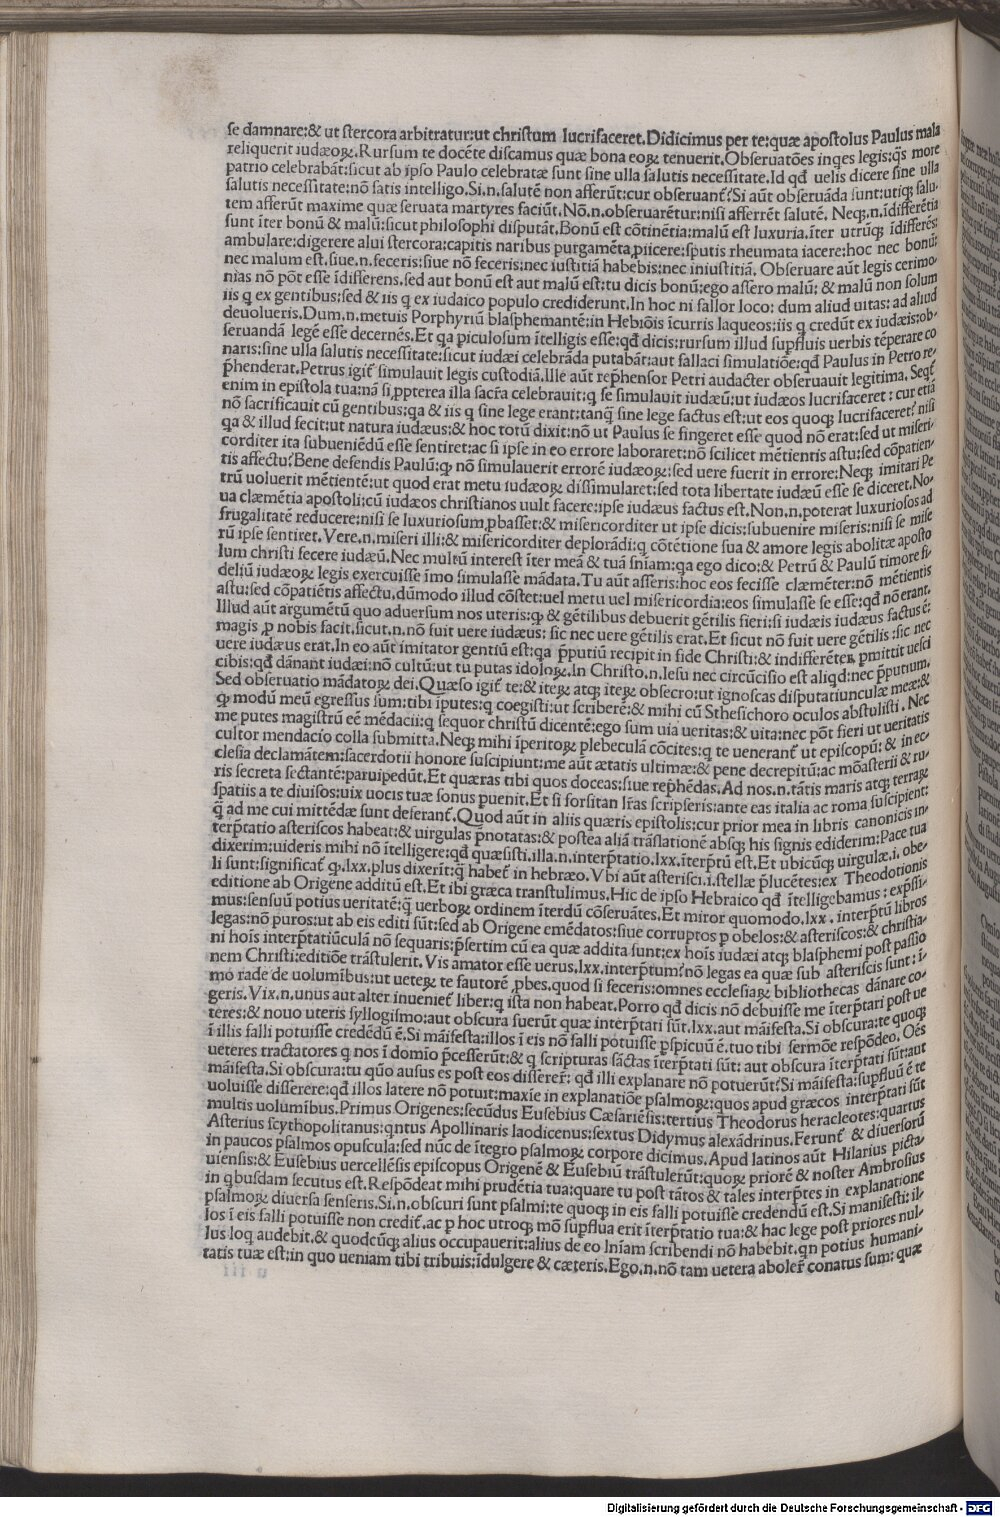 se damnare:& ut stercora arbitratur:ut christum lucrifaceret.Didicimus per te:quæ apostolus Paulus mala
reliquerit iudæoꝝ.Rursum te docēte discamus quæ bona eoꝝ tenuerit.Obseruatōes inqes legis:q̃s more
patrio celebrabāt:sicut ab ip̄so Paulo celebratæ sunt sine ulla salutis necessitate.Id qđ uelis dicere sine ulla
salutis necessitate:nō satis intelligo.Si.n.salutē non afferūt:cur obseruant̃?Si aūt obseruāda sunt:utiqꝫ salu-
tem afferūt maxime quæ seruata martyres faciūt.Nō.n.obseruarētur:nisi afferrēt salutē. Neqꝫ.n.īdifferētia
sunt īter bonū & malū:sicut philosophi disputāt.Bonū est cōtinētia:malū est luxuria.īter utrūqꝫ īdifferēs:
ambulare:digerere alui stercora:capitis naribus purgamēta ꝓiicere:sputis rheumata iacere:hoc nec bonū:
nec malum est.siue.n.feceris:siue nō feceris:nec iustitiā habebis:nec iniustitiā. Obseruare aūt legis cerimo-
nias nō pōt esse īdifferens.sed aut bonū est aut malū est:tu dicis bonū:ego assero malū: & malū non solum
iis q ex gentibus:sed & iis q ex iudaico populo crediderunt.In hoc ni fallor loco: dum aliud uitas: ad aliud
deuolueris.Dum.n.metuis Porphyriū blasphemantē:in Hebiōis īcurris laqueos:iis q credūt ex iudæis:ob-
seruandā legē esse decernēs.Et qa ꝑiculosum ītelligis esse:qđ dicis:rursum illud supfluis uerbis tēperare co
naris:sine ulla salutis necessitate:sicut iudæi celebrāda putabāt:aut fallaci simulatiōe:qđ Paulus in Petro re-
p̄henderat.Petrus igit̃ simulauit legis custodiā.Ille aūt rep̄hensor Petri audacter obseruauit legitima. Seqt̃
enim in epistola tua:nā si ꝓpterea illa sacr̃a celebrauit:q se simulauit iudæū:ut iudæos lucrifaceret : cur etiā
nō sacrificauit cū gentibus:qa & iis q sine lege erant:tanq̃ sine lege factus est:ut eos quoqꝫ lucrifaceret? nisi
qa & illud fecit:ut natura iudæus:& hoc totū dixit:nō ut Paulus se fingeret esse quod nō erat:sed ut miseri-
corditer ita subueniēdū esse sentiret:ac si ipse in eo errore laboraret:nō scilicet mētientis astu:sed cōpatien-
tis affectu?Bene defendis Paulū:ꝙ nō simulauerit errorē iudæoꝝ:sed uere fuerit in errore:Neqꝫ imitari Pe
trū uoluerit mētientē:ut quod erat metu iudæoꝝ dissimularet:sed tota libertate iudæū esse se diceret.No-
ua clæmētia apostoli:cū iudæos christianos uult facere:ipse iudæus factus est.Non.n.poterat luxuriosos ad
frugalitatē reducere:nisi se luxuriosum ꝓbasset:& misericorditer ut ipse dicis:subuenire miseris:nisi se mise
rū ipse sentiret.Vere.n.miseri illi:& misericorditer deplorādi:q cōtētione sua & amore legis abolitæ aposto
lum christi fecere iudæū.Nec multū interest īter meā & tuā sñiam:qa ego dico:& Petrū & Paulū timore fi-
deliū iudæoꝝ legis exercuisse īmo simulasse mādata.Tu aūt asseris:hoc eos fecisse clæmēter:nō mētientis
astu:sed cōpatiētis affectu,dūmodo illud cōstet:uel metu uel misericordia:eos simulasse se esse:qđ nō erant.
Illud aūt argumētū quo aduersum nos uteris:ꝙ & gētilibus debuerit gētilis fieri:si iudæis iudæus factus ē:
magis ꝓ nobis facit.sicut.n.nō fuit uere iudæus: sic nec uere gētilis erat.Et sicut nō fuit uere gētilis :sic nec
uere iudæus erat.In eo aūt imitator gentiū est:qa p̄putiū recipit in fide Christi:& indifferēter ꝑmittit uesci
cibis:qđ dānant iudæi:nō cultū:ut tu putas idoloꝝ.In Christo.n.Iesu nec circūcisio est aliqd:nec p̄putium.
Sed obseruatio mādatoꝝ dei.Quæso igit̃ te:& iteꝝ atqꝫ iteꝝ obsecro:ut ignoscas disputatiunculæ meæ:&
ꝙ modū meū egressus sum:tibi īputes:q coegisti:ut scriberē:& mihi cū Sthesichoro oculos abstulisti . Nec
me putes magistrū eē mēdacii:q sequor christū dicentē:ego sum uia ueritas:& uita:nec pōt fieri ut ueritatis
cultor mendacio colla submitta.Neqꝫ mihi īperitoꝝ plebeculā cōcites:q te uenerant̃ ut episcopū: & in ec-
clesia declamātem:sacerdotii honore suscipiunt:me aūt ætatis ultimæ:& pene decrepitū:ac mōasterii & ru-
ris secreta sectantē:paruipedūt.Et quæras tibi quos doceas:siue rep̄hēdas.Ad nos.n.tātis maris atqꝫ terraꝝ
spatiis a te diuisos:uix uocis tuæ sonus puenit.Et si forsitan lr̃as scripseris:ante eas italia ac roma suscipient:
q̃ ad me cui mittēdæ sunt deferant̃.Quod aūt in aliis quæris epistolis:cur prior mea in libris canonicis in-
terp̄tatio asteriscos habeat:& uirgulas p̄notatas:& postea aliā trāslationē absqꝫ his signis ediderim:Pace tua
dixerim:uideris mihi nō ītelligere:qđ quæsisti.illa.n.interp̄tatio.lxx.īterp̄tū est.Et ubicūqꝫ uirgulæ.i. obe-
li sunt:significat̃ ꝙ.lxx.plus dixerīt:q̃ habet̃ in hebræo.Vbi aūt asterisci.i.stellæ p̄lucētes:ex Theodotionis
editione ab Origene additū est.Et ibi græca transtulimus.Hic de ipso Hebraico qđ ītelligebamus : exp̄ssi-
mus:sensuū potius ueritatē:q̃ uerboꝝ ordinem īterdū cōseruātes.Et miror quomodo.lxx . interp̄tū libros
legas:nō puros:ut ab eis editi sūt:sed ab Origene emēdatos:siue corruptos p obelos:& asteriscos:& christia-
ni hoīs interp̄tatiūculā nō sequaris:p̄sertim cū ea quæ addita sunt:ex hoīs iudæi atqꝫ blasphemi post passio
nem Christi:editiōe trāstulerit. Vis amator esse uerus.lxx.interp̄tum?nō legas ea quæ sub asteriscis sunt : ī-
mo rade de uolumībus:ut ueteꝝ te fautorē ꝓbes.quod si feceris:omnes ecclesiaꝝ bibliothecas dānare co-
geris.Vix.n.unus aut alter inueniet̃ liber:q ista non habeat.Porro qđ dicis nō debuisse me īterp̄tari post ue
teres:& nouo uteris syllogismo:aut obscura fuerūt quæ interp̄tati sūt.lxx.aut māifesta.Si obscura:te quoqꝫ
ī illis falli potuisse credēdū ē.Si māifesta:illos ī eis nō falli potuisse pspicuū ē.tuo tibi sermōe respōdeo. Oēs
ueteres tractatores q nos ī domīo p̄cesserūt:& q scripturas sāctas īterp̄tati sūt: aut obscura īterp̄tati sūt:aut
māifesta.Si obscura:tu quō ausus es post eos disserer̃: qđ illi explanare nō potuerūt?Si māifesta:supfluū ē te
uoluisse disserere:qđ illos latere nō potuit:maxīe in explanatiōe psalmoꝝ:quos apud græcos interp̄tati sūt
multis uolumībus.Primus Origenes:secūdus Eusebius Cæsariēsis:tertius Theodorus heracleotes:quartus
Asterius scythopolitanus:qntus Apollinaris laodicenus:sextus Didymus alexādrinus.Ferunt̃ & diuersorū
in paucos psalmos opuscula:sed nūc de ītegro psalmoꝝ corpore dicimus.Apud latinos aūt Hilarius picta-
uiensis:& Eusebius uercellēsis episcopus Origenē & Eusebiū trāstulerūt:quoꝝ priorē & noster Ambrosius
in qbusdam secutus est.Respōdeat mihi prudētia tua:quare tu post tātos & tales interp̄tes in explanatione
psalmoꝝ diuersa senseris.Si.n.obscuri sunt psalmi:te quoqꝫ in eis falli potuisse credendū est.Si manifesti:il-
los ī eis falli potuisse non credit̃.ac p hoc utroqꝫ mō supflua erit īterp̄tatio tua:& hac lege post priores nul-
lus loq audebit.& quodcūqꝫ alius occupauerit:alius de eo lñiam scribendi nō habebit.qn potius humani-
tatis tuæ est:in quo ueniam tibi tribuis:īdulgere & cæteris.Ego.n.nō tam uetera aboler̃ conatus sum: quæ
Digitalisierung gefördert durch die Deutsche Forschungsgemeinschaft - DFG